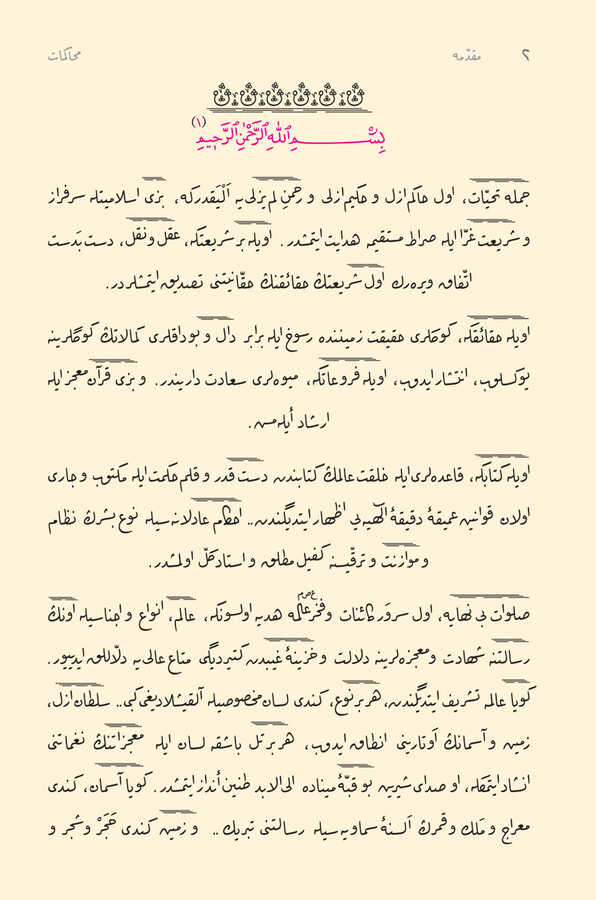 ٢ مقدّمه محاكمات
بِسْمِ اللّٰهِ الرَّحْمٰنِ الرَّحِيمِ (١)
جمله تحيّات، اول حاكم ازل و حكيم ازلى و رحمن لم يزلى‌يه اَلْيَقدركه، بزى اسلاميتله سرفراز
و شريعت غرّا ايله صراط مستقيمه هدايت ايتمشدر. اويله بر شريعتكه، عقل و نقل، دست بدست
اتّفاق ويره‌رك اول شريعتك حقائقنك حقّانيتنى تصديق ايتمشلردر.
اويله حقائقكه، كوكلرى حقيقت زميننده رسوخ ايله برابر دال و بوداقلرى كمالاتك كوكلرينه
يوكسلوب، انتشار ايدوب، اويله فروعاتكه، ميوه‌لرى سعادت داريندر. و بزى قرآن معجز ايله
ارشاد أيله‌مس.
اويله كتابكه، قاعده‌لرى ايله خلقت عالمك كتابندن دست قدر و قلم حكمت ايله مكتوب و جارى
اولان قوانين عميقهٔ دقيقهٔ الٰهيه‌يى اظهار ايتديگندن.. احكام عادلانه‌سيله نوع بشرك نظام
و موازنت و ترقّيسنه كفيل مطلق و استاد كلّ اولمشدر.
صلوات بى نهايه، اول سرور كائنات و فخر عالمه عصم هديه اولسونكه، عالم، انواع و اجناسيله اونك
رسالتنه شهادت و معجزه‌لرينه دلالت و خزينهٔ غيبدن كتيرديگى متاع عالى‌يه دلّاللق ايدييور.
كويا عالمه تشريف ايتديگندن، هر بر نوع، كندى لسان مخصوصيله آلقيشلاديغى كبى.. سلطان ازل،
زمين و آسمانك أوتارينى انطاق ايدوب، هر بر تل باشقه لسان ايله معجزاتنك نغماتنى
انشاد ايتمكله، او صداى شيرين بو قبّهٔ ميناده الى الابد طنين أنداز ايتمشدر. كويا آسمان، كندى
معراج و ملك و قمرك ألسنهٔ سماويه‌سيله رسالتنى تبريك.. و زمين كندى حَجَرْ و شجر و